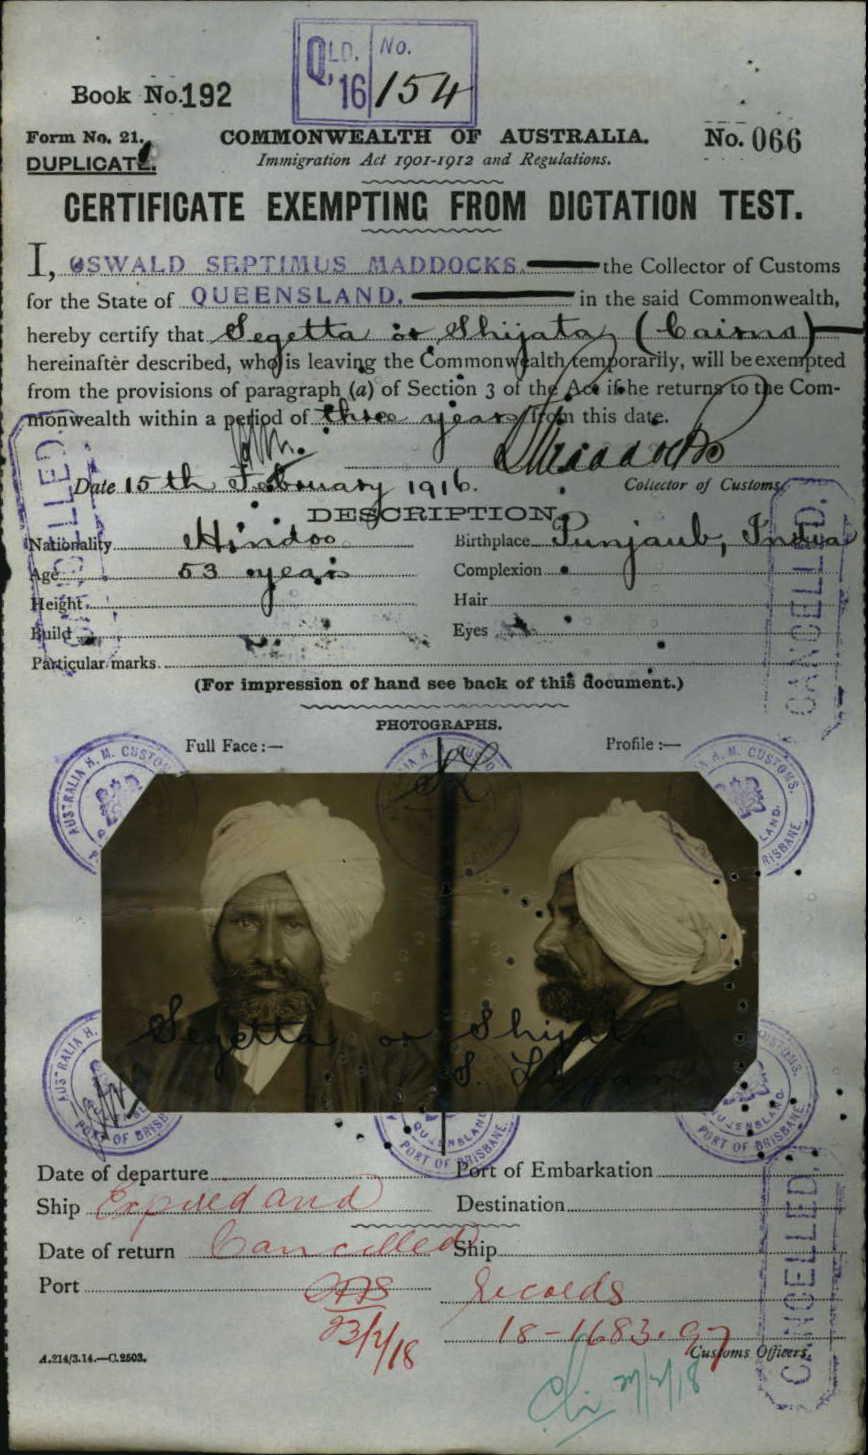 QLD. 16 No. 154
Book No.192
Form No. 21. COMMONWEALTH OF AUSTRALIA. No. 066
DUPLICATE. Immigration Act 1901-1912 and Regulations.
CERTIFICATE EXEMPTING FROM DICTATION TEST.
I, OSWALD SEPTIMUS MADDOCKS. the Collector of Customs
for the State of QUEENSLAND. in the said Commonwealth,
hereby certify that Segetta or Shijata (Cairns)
hereinafter described, who is leaving the Commonwealth temporarily, will be exempted
from the provisions of paragraph (a) of Section 3 of the Act if he returns to the Com-
monwealth within a period of three years from this date.
Date 15th February 1916. Collector of Customs.
DESCRIPTION.
Nationality Hindoo Birthplace Punjaub, India
Age 53 years Complexion
Height. Hair
Build Eyes
Particular marks.
(For impression of hand see back of this document.)
PHOTOGRAPHS.
Full Face :— Profile :—
AUSTRALIA H. M. CUSTOMS. QUEENSLAND. PORT OF BRISBANE.
Segetta or Shijata
Date of departure Port of Embarkation
Ship Expired and Destination
Date of return Cancelled Ship
Port Records
23/2/18 18-1683.97
Customs Officers.
A.214/3.14.—C.2503.
CANCELLED.
CANCELLED.
CANCELLED.